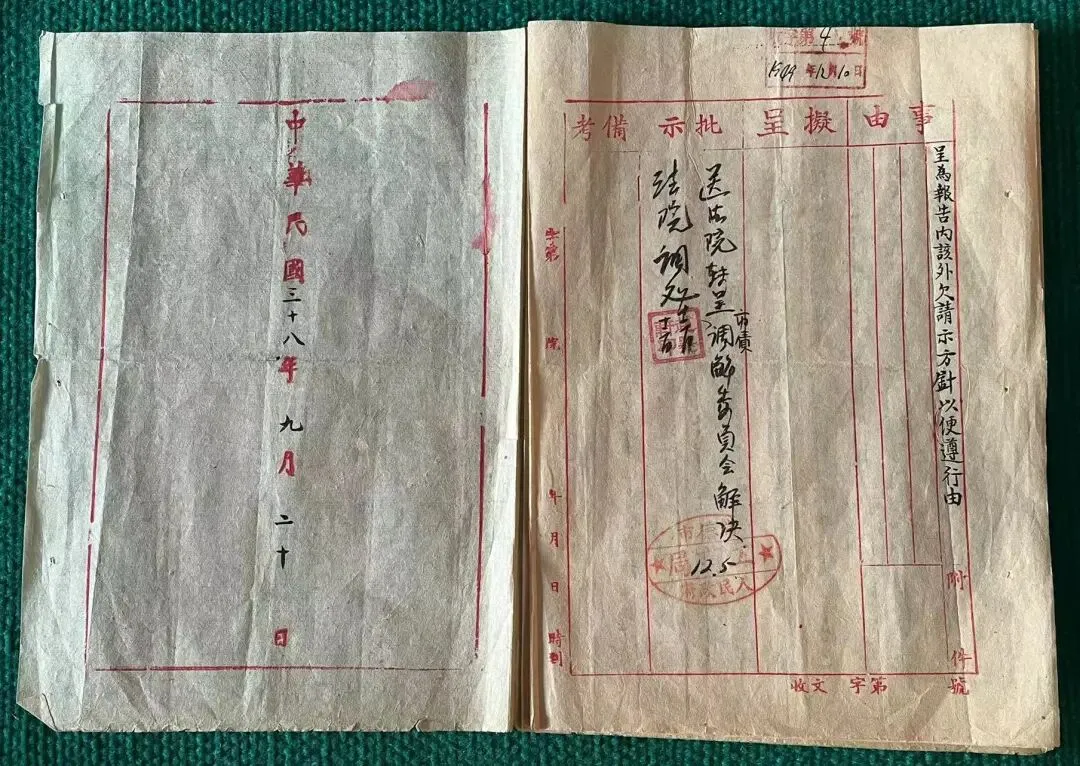 第4號
1949年12月10日
事由
擬
呈
批示
備考
呈為報告內該外欠請示方針以便遵行由
附件
送法院轉呈市債調解委員会解决
12.5
法院调处
字第
院
年月日時到
收文字第號
中華民國三十八年九月二十日